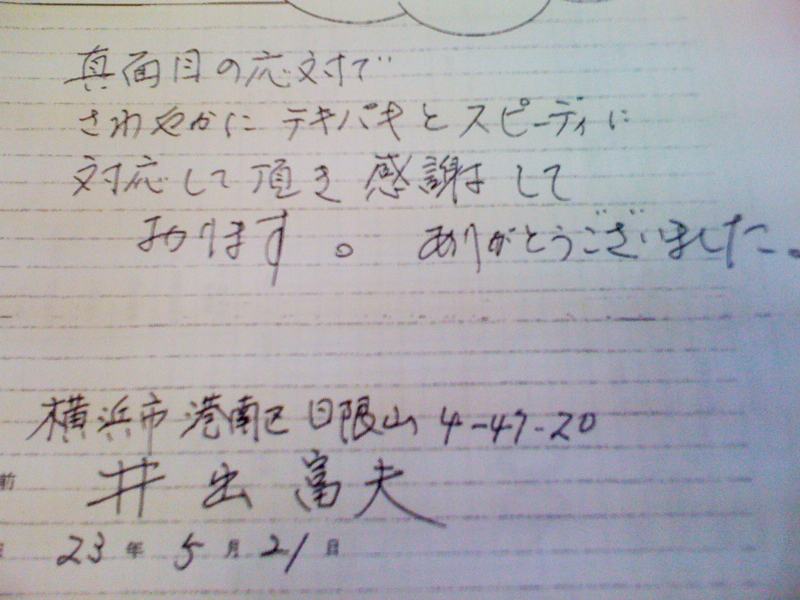 真面目の応対で
さわやかに テキパキと スピーディに
対応して頂き 感謝は して
おります。 ありがとうございました。
横浜市 港南区 日限山 4-47-20
前 井出 富夫
23 年 5 月 21 日